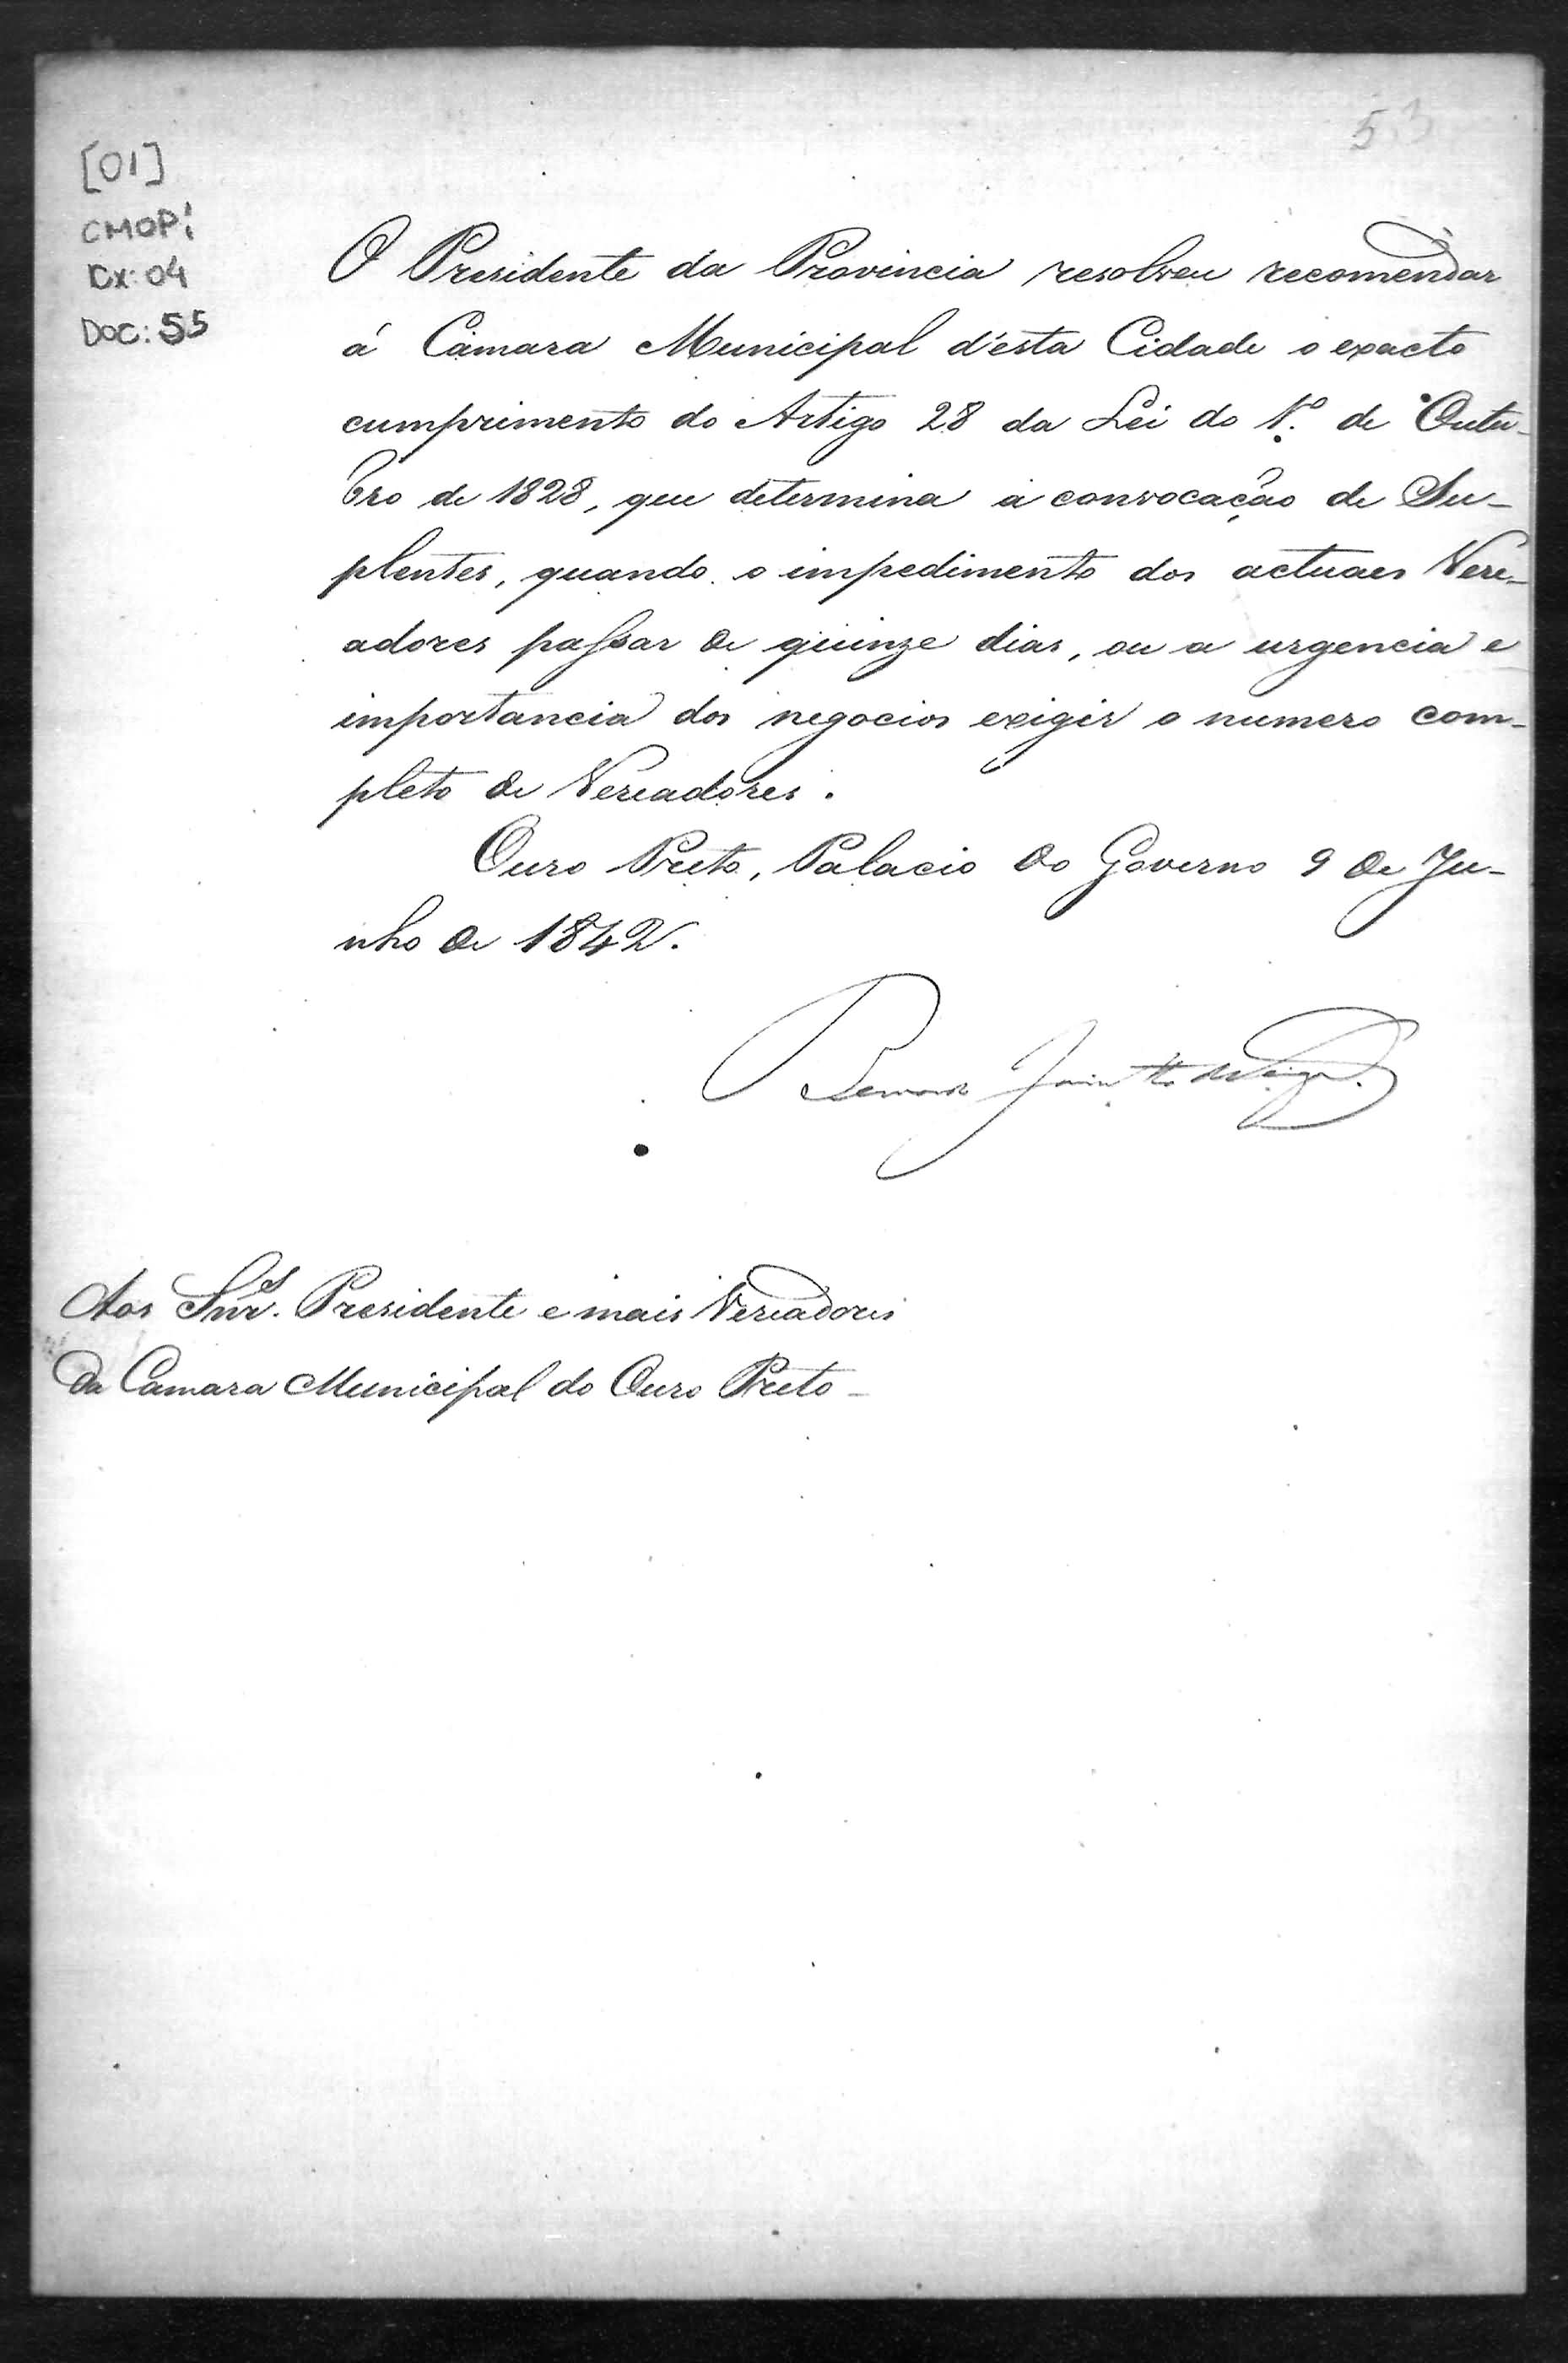 53
[01]
CMOP:
Cx: 04
Doc: 55
O Presidente da Provincia resolveu recomendar
á Câmara Municipal d'esta Cidade o exacto
cumprimento do Artigo 28 da Lei do 1.º de Outu-
bro de 1828, que determina a convocação de Su-
plentes, quando o impedimento dos actuaes Vere-
adores passar de quinze dias, ou a urgencia e
importancia dos negocios exigir o numero com-
pleto de Vereadores.
Ouro Preto, Palacio do Governo 9 de Ju-
nho de 1842.
Bernardo Jacintho da Veiga.
Aos Snr.s Presidente e mais Vereadores
da Camara Municipal do Ouro Preto -